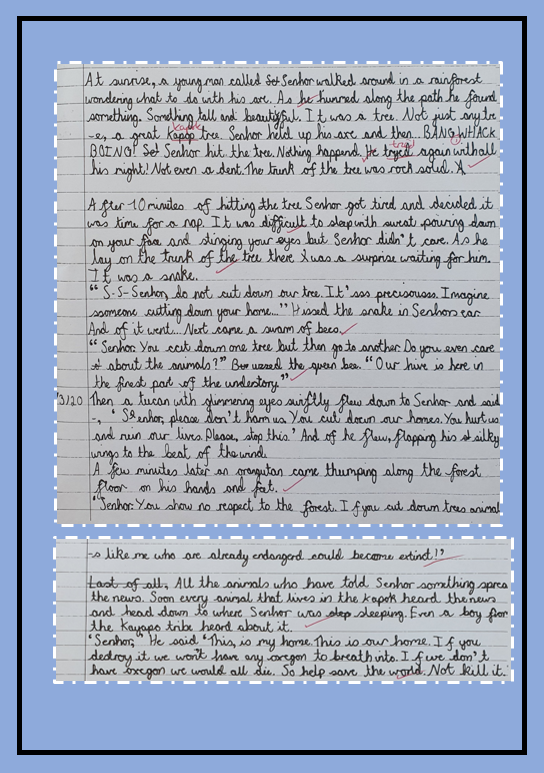 At sunrise, a young man called Set Senhor walked around in a rainforest
wondering what to do with his axe. As he hurried along the path he found
something. Something tall and beautiful. It was a tree. Not just any tre
-e, a great Kapop tree. Senhor held up his axe and then... BANG WHACK
kapok
BOING! Set Senhor hit the tree. Nothing happend. He tryed again with all
tried
his right! Not even a dent. The trunk of the tree was rock solid. A
After 10 minites of hitting the tree Senhor got tired and decided it
was time for a nap. It was difficult to sleep with sweat pouring down
on your face and stinging your eyes but Senhor didn't care. As he
lay on the trunk of the tree there was a surprise waiting for him.
It was a snake.
"S-S-Senhor, do not cut down our tree. It'sss preciousss. Imagine
ssomeone cutting down your home..." Hissed the snake in Senhors ear.
And of it went... Next came a swarm of bees.
"Senhor. You cut down one tree but then go to another. Do you even care
about the animals?" Buzzed the queen bee. "Our hive is here in
the finest part of the understory."
3/20 Then a tucan with glimmering eyes swiftly flew down to Senhor and said
-, 'Senhor, please don't harm us. You cut down our homes. You hurt us
and ruin our lives. Please, stop this.' And of he flew, flapping his silky
wings to the beat of the wind.
A few minutes later an orangutan came thumping along the forest
floor on his hands and feet.
"Senhor. You show no respect to the forest. If you cut down trees animal
-s like me who are already endangerd could become extinct!"
Last of all, All the animals who have told Senhor something sprea
the news. Soon every animal that lives in the kapok heard the news
and head down to where Senhor was slep sleeping. Even a boy from
the Kayapo tribe heard about it.
'Senhor,' He said 'This, is my home. This is our home. If you
destroy it we won't have any oxegon to breath into. If we don't
have oxegon we would all die. So help save the world. Not kill it.'